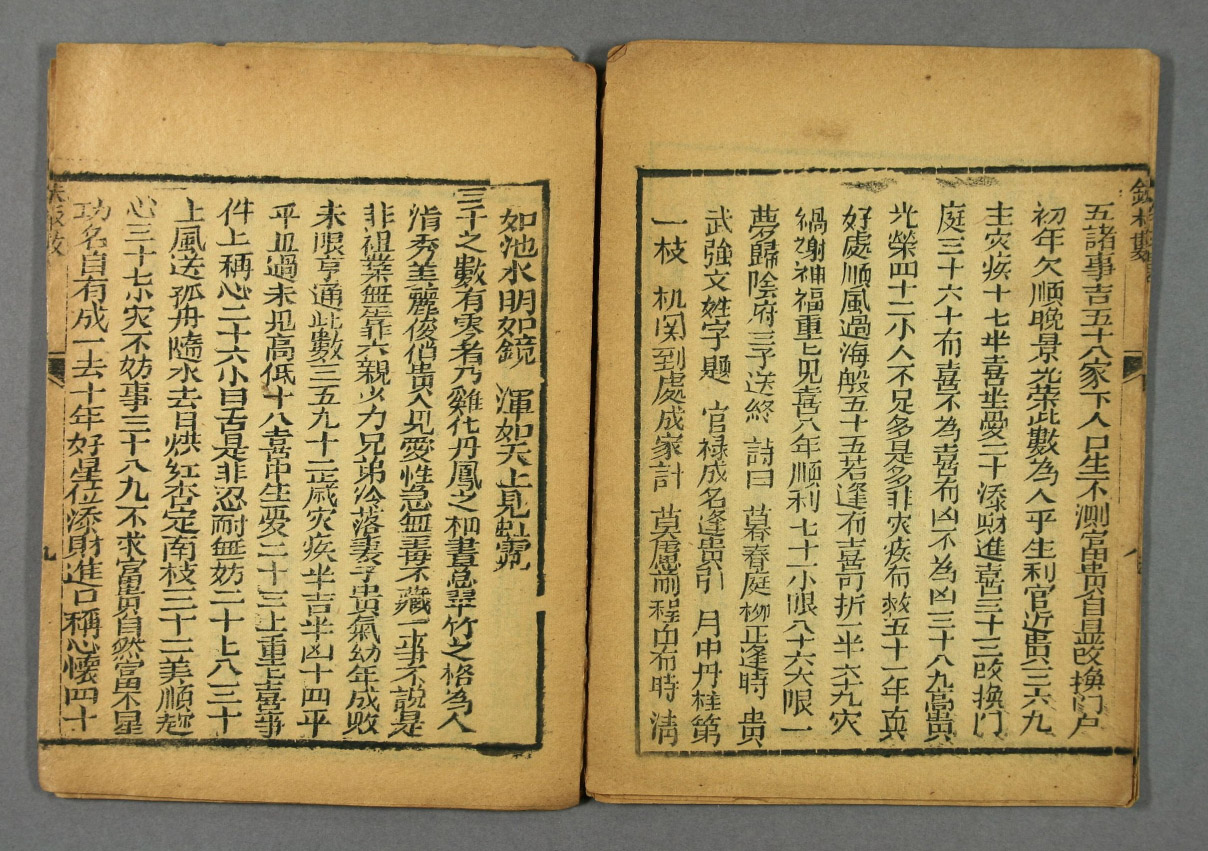 五諸事吉五十六家下人口生不測富貴自昌改換门户
初年欠順晚景光荣此數為人平生利官近貴六三六九
主灾疾十七半喜半憂二十添財進喜三十三改換门
庭三十六十有喜不為喜有凶不為凶三十八九高貴
光榮四十二小人不足多是多非灾疾有救五十一年真
好處順風過海般五十五若逢有喜可折一半六十九穴
禍謝神福重七见喜八年順利七十一小限八十六大限一
夢歸陰府三子送終 詩曰 暮春庭栁正逢時 貴
武強文姓字題 官禄成名逢貴引 月中丹桂第
一枝 机関到處成家計 莫慮前程由有時 清
如池水明如鏡 渾如天上見虹霓
三十之數有零者乃雞化丹鳳之相晝急翠竹之格為人
清秀美麗俊俏貴人见愛性急無毒不藏一事不說是
非祖業無靠六親少力兄弟冷落妻子貴氣幼年成敗
未限亨通此數三五九十二歲灾疾半吉半凶十四平
平且過未见高低十八喜中生憂二十三上重上喜事
件上稱心二十六小口舌是非忍耐無妨二十上八三十
上風送孤舟隨水去日烘紅杏定南枝三十二美順趂
心三十七小灾不妨事三十八九不求富貴自然富不星
功名自有成一去十年好星位添財進口稱心懷四十
九